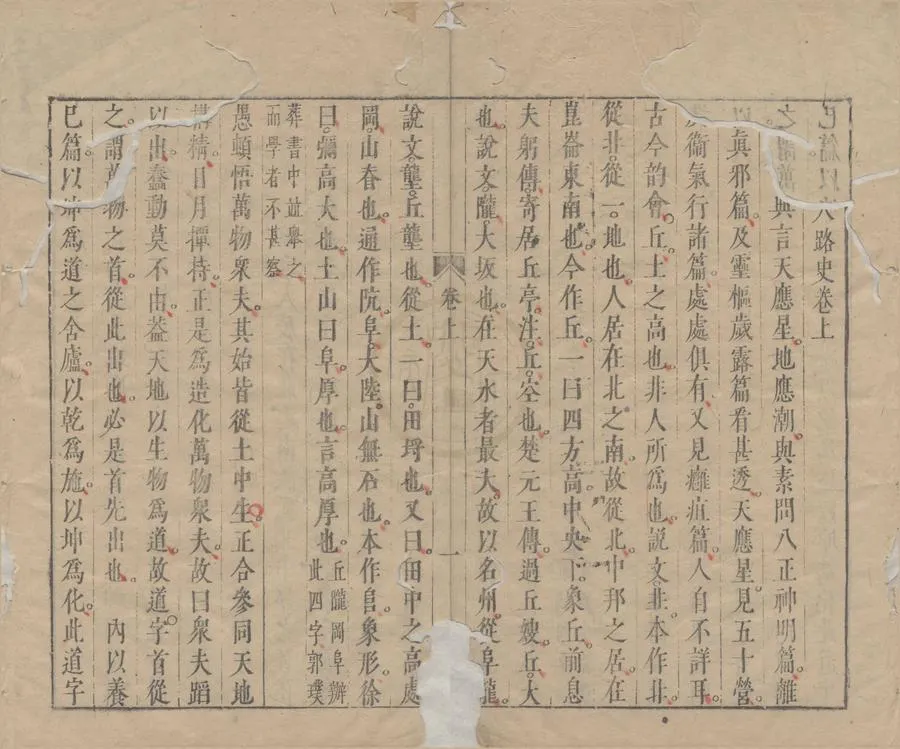 八路史卷上
與言天應星地應潮與素問八正神明篇離
眞邪篇及靈樞歲露篇看甚透天應星見五十營
衞氣行諸篇處處俱有又見癰疽篇人自不詳耳
古今韵會丘土之高也非人所爲也說文丠本作丠
從北從一地也人居在北之南故從北中邦之居在
崑崙東南也今作丘一曰四方高中央下象丘前息
夫躬傳寄居丘亭注丘空也楚元王傳過丘嫂丘大
也說文隴大坂也在天水者最大故以名州從阜龍
卷上
一
說文壟丘壟也從土一曰田埓也又曰田中之高處
岡山脊也通作阬阜大陸山無石也本作𨸏象形徐
曰彌高大也土山曰阜厚也言高厚也丘隴岡阜辨
此四字郭璞
葬書中竝舉之
而學者不甚察
愚頓悟萬物衆夫其始皆從土中生正合參同天地
媾精日月撢持正是爲造化萬物衆夫故曰衆夫蹈
以出蠢動莫不由葢天地以生物爲道故道字首從
之謂萬物之首從此出也必是首先出也 內以養
巳篇以坤爲道之舍廬以乾爲施以坤爲化此道字